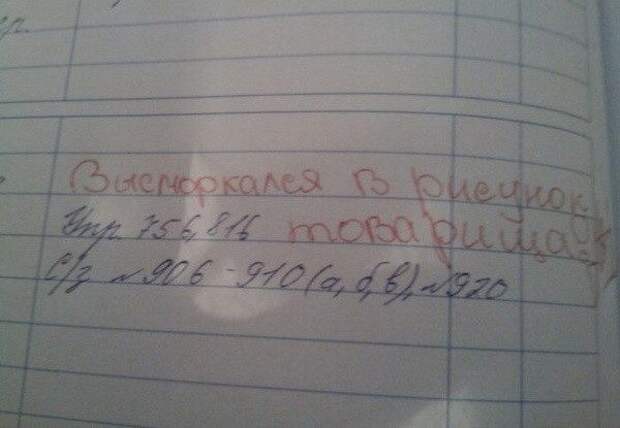 Высморкался в рисунок
товарища
Упр. 756, 816
С/з №906-910 (а, б, в), №920